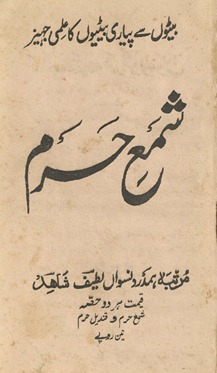 بیٹوں سے پیاری بیٹیوں کا علمی جہیز
شمع حرم
مرتبہ ہمدرد نسواں لطیف شاہد
قیمت ہر دو حصّہ
شمع حرم و قندیل حرم
تین روپے